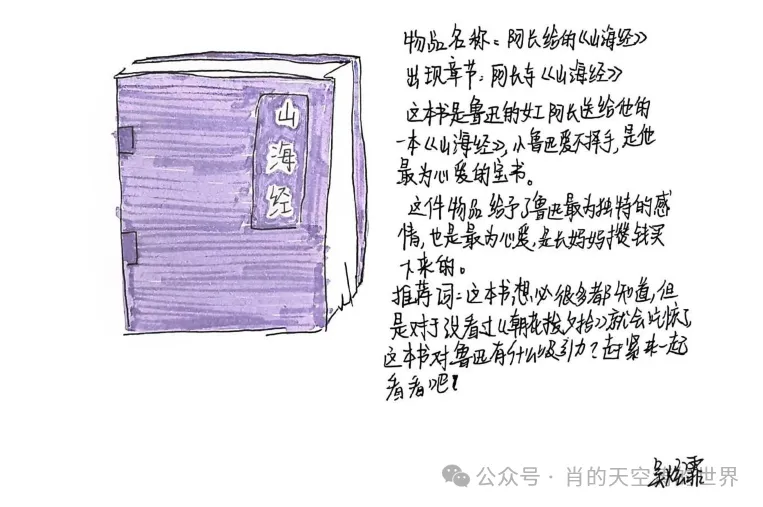 山海经
物品名称：阿长给的《山海经》
出现章节：阿长与《山海经》
这本书是鲁迅的女工阿长送给他的
一本《山海经》，小鲁迅爱不择手，是他
最为心爱的宝书。
这件物品给予了鲁迅最为独特的感
情，也是最为心爱，是长妈妈攒钱买
下来的。
推荐词：这本书想必很多都知道，但
是对于没看过《朝花拾夕拾》就会吃惊了
这本书对鲁迅有什么吸引力？赶紧来一起
看看吧！
公众号·肖的天空 世界
吴 霏